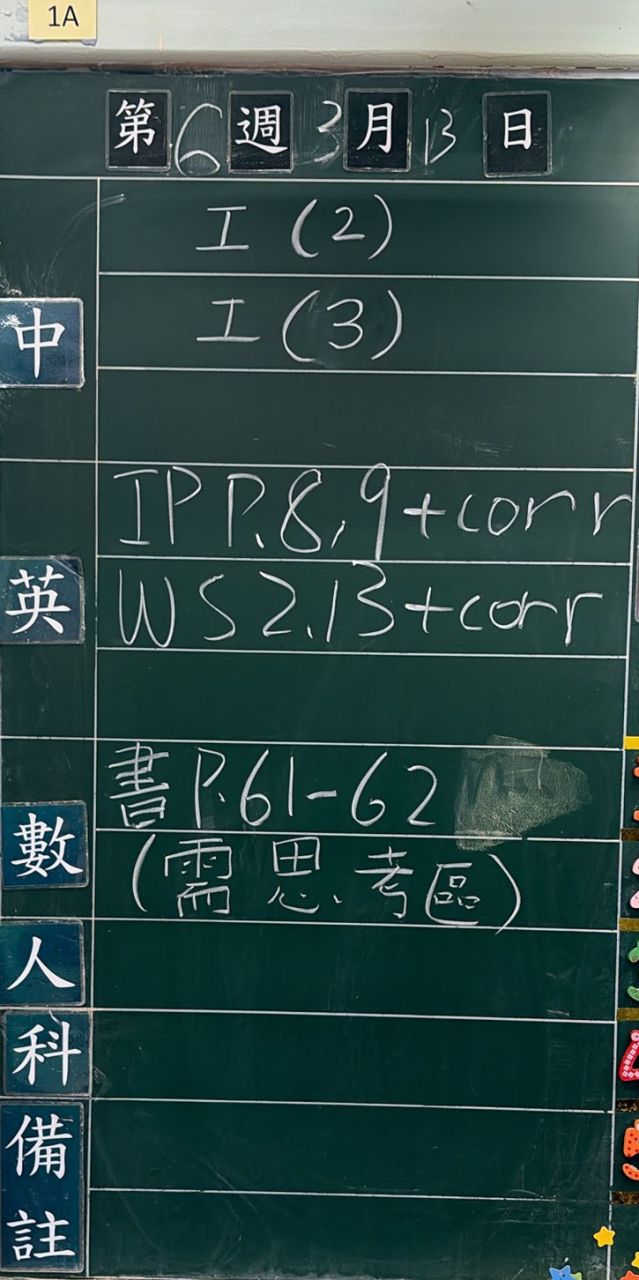 1A
第6週3月13日
工(2)
中 工(3)
IP P.8,9+corr
英 WS2.13+corr
書P.61-62
數 (需思考區)
人
科
備
註